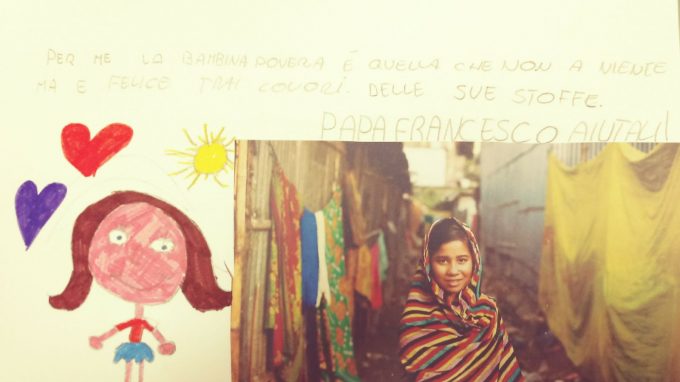 PER ME LA BAMBINA POVERA È QUELLA CHE NON A NIENTE
MA E FELICE TRAI COLORI. DELLE SUE STOFFE.
PAPA FRANCESCO AIUTALI!